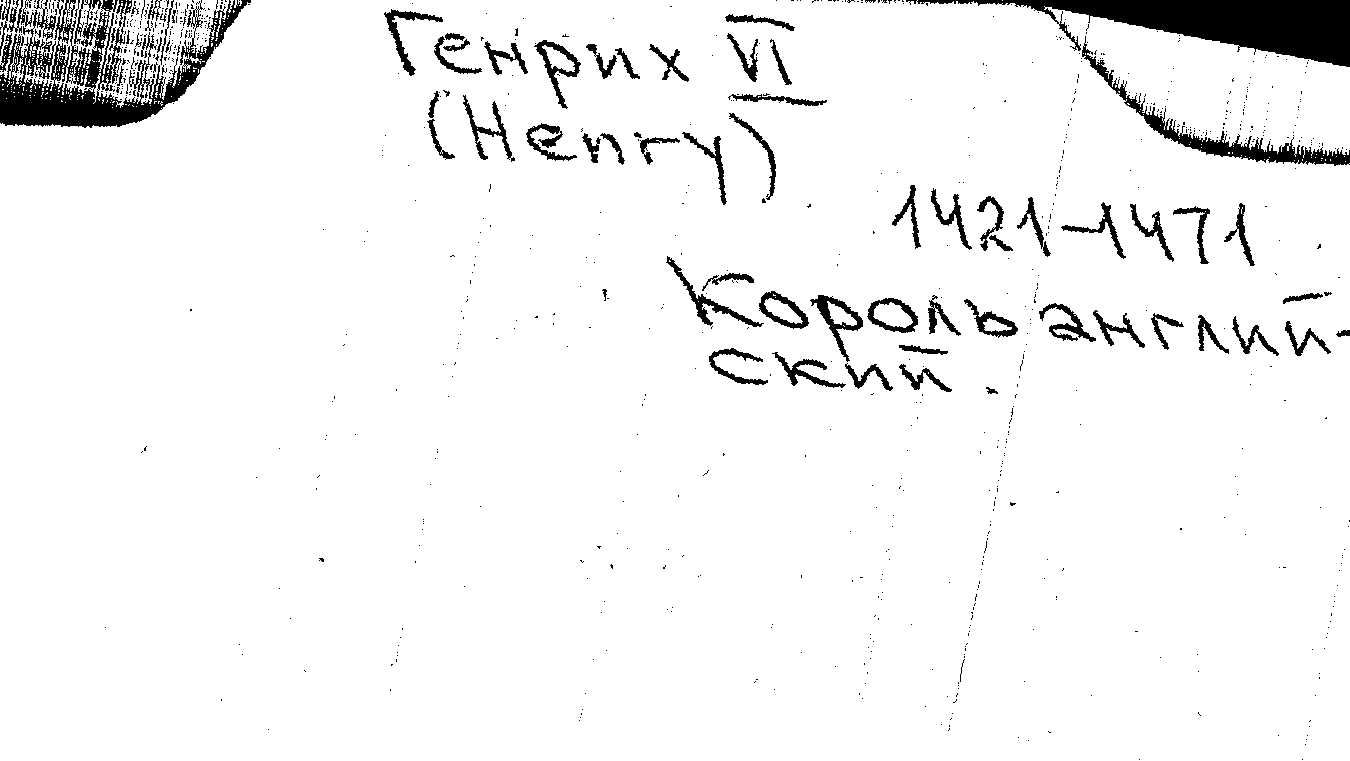 Генрих VI
(Henry)
1421-1471
Король англий-
ский.